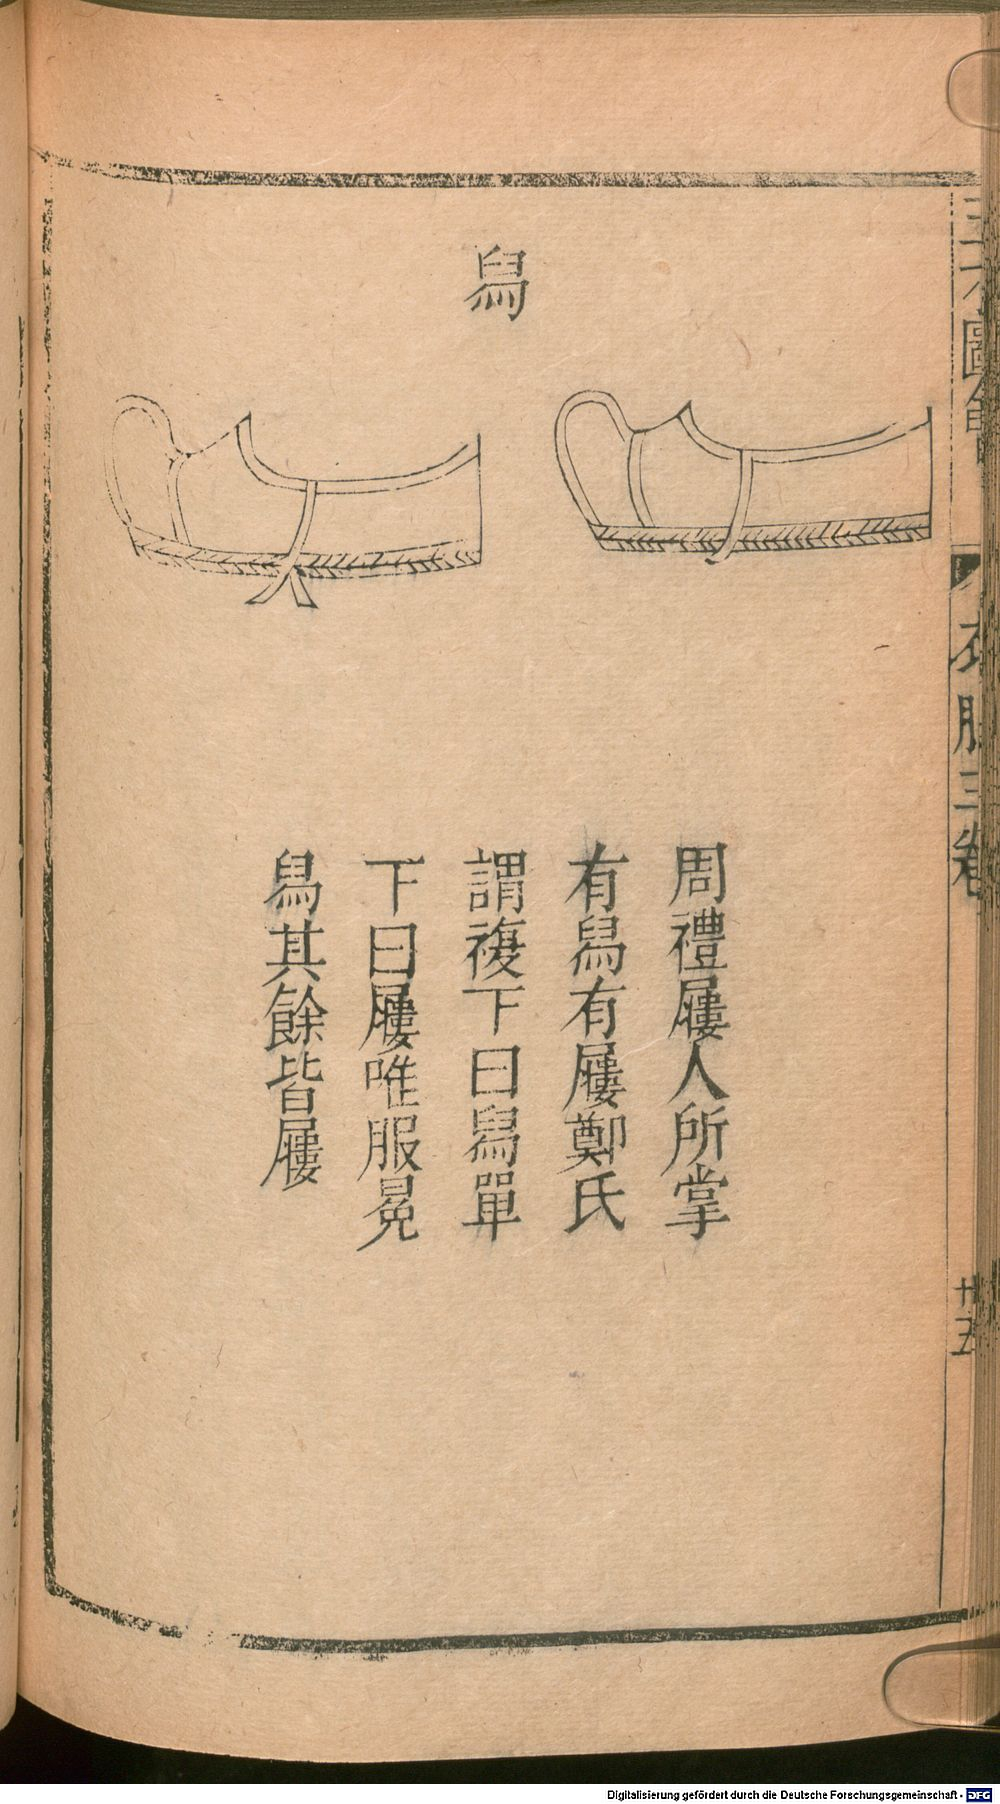 舄
周禮屨人所掌
有舄有屨鄭氏
謂複下曰舄單
下曰屨唯服冕
舄其餘皆屨
三才圖會
衣服三卷
廿五
Digitalisierung gefördert durch die Deutsche Forschungsgemeinschaft - DFG